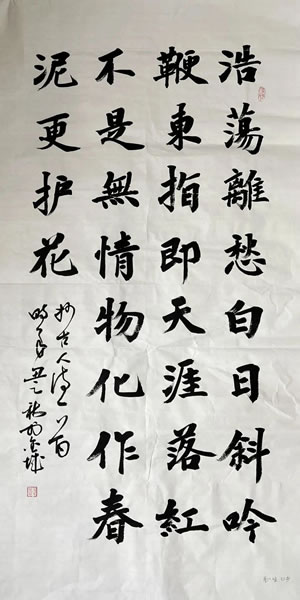 浩蕩離愁白日斜吟
鞭東指即天涯落紅
不是無情物化作春
泥更护花
抄古人诗一首